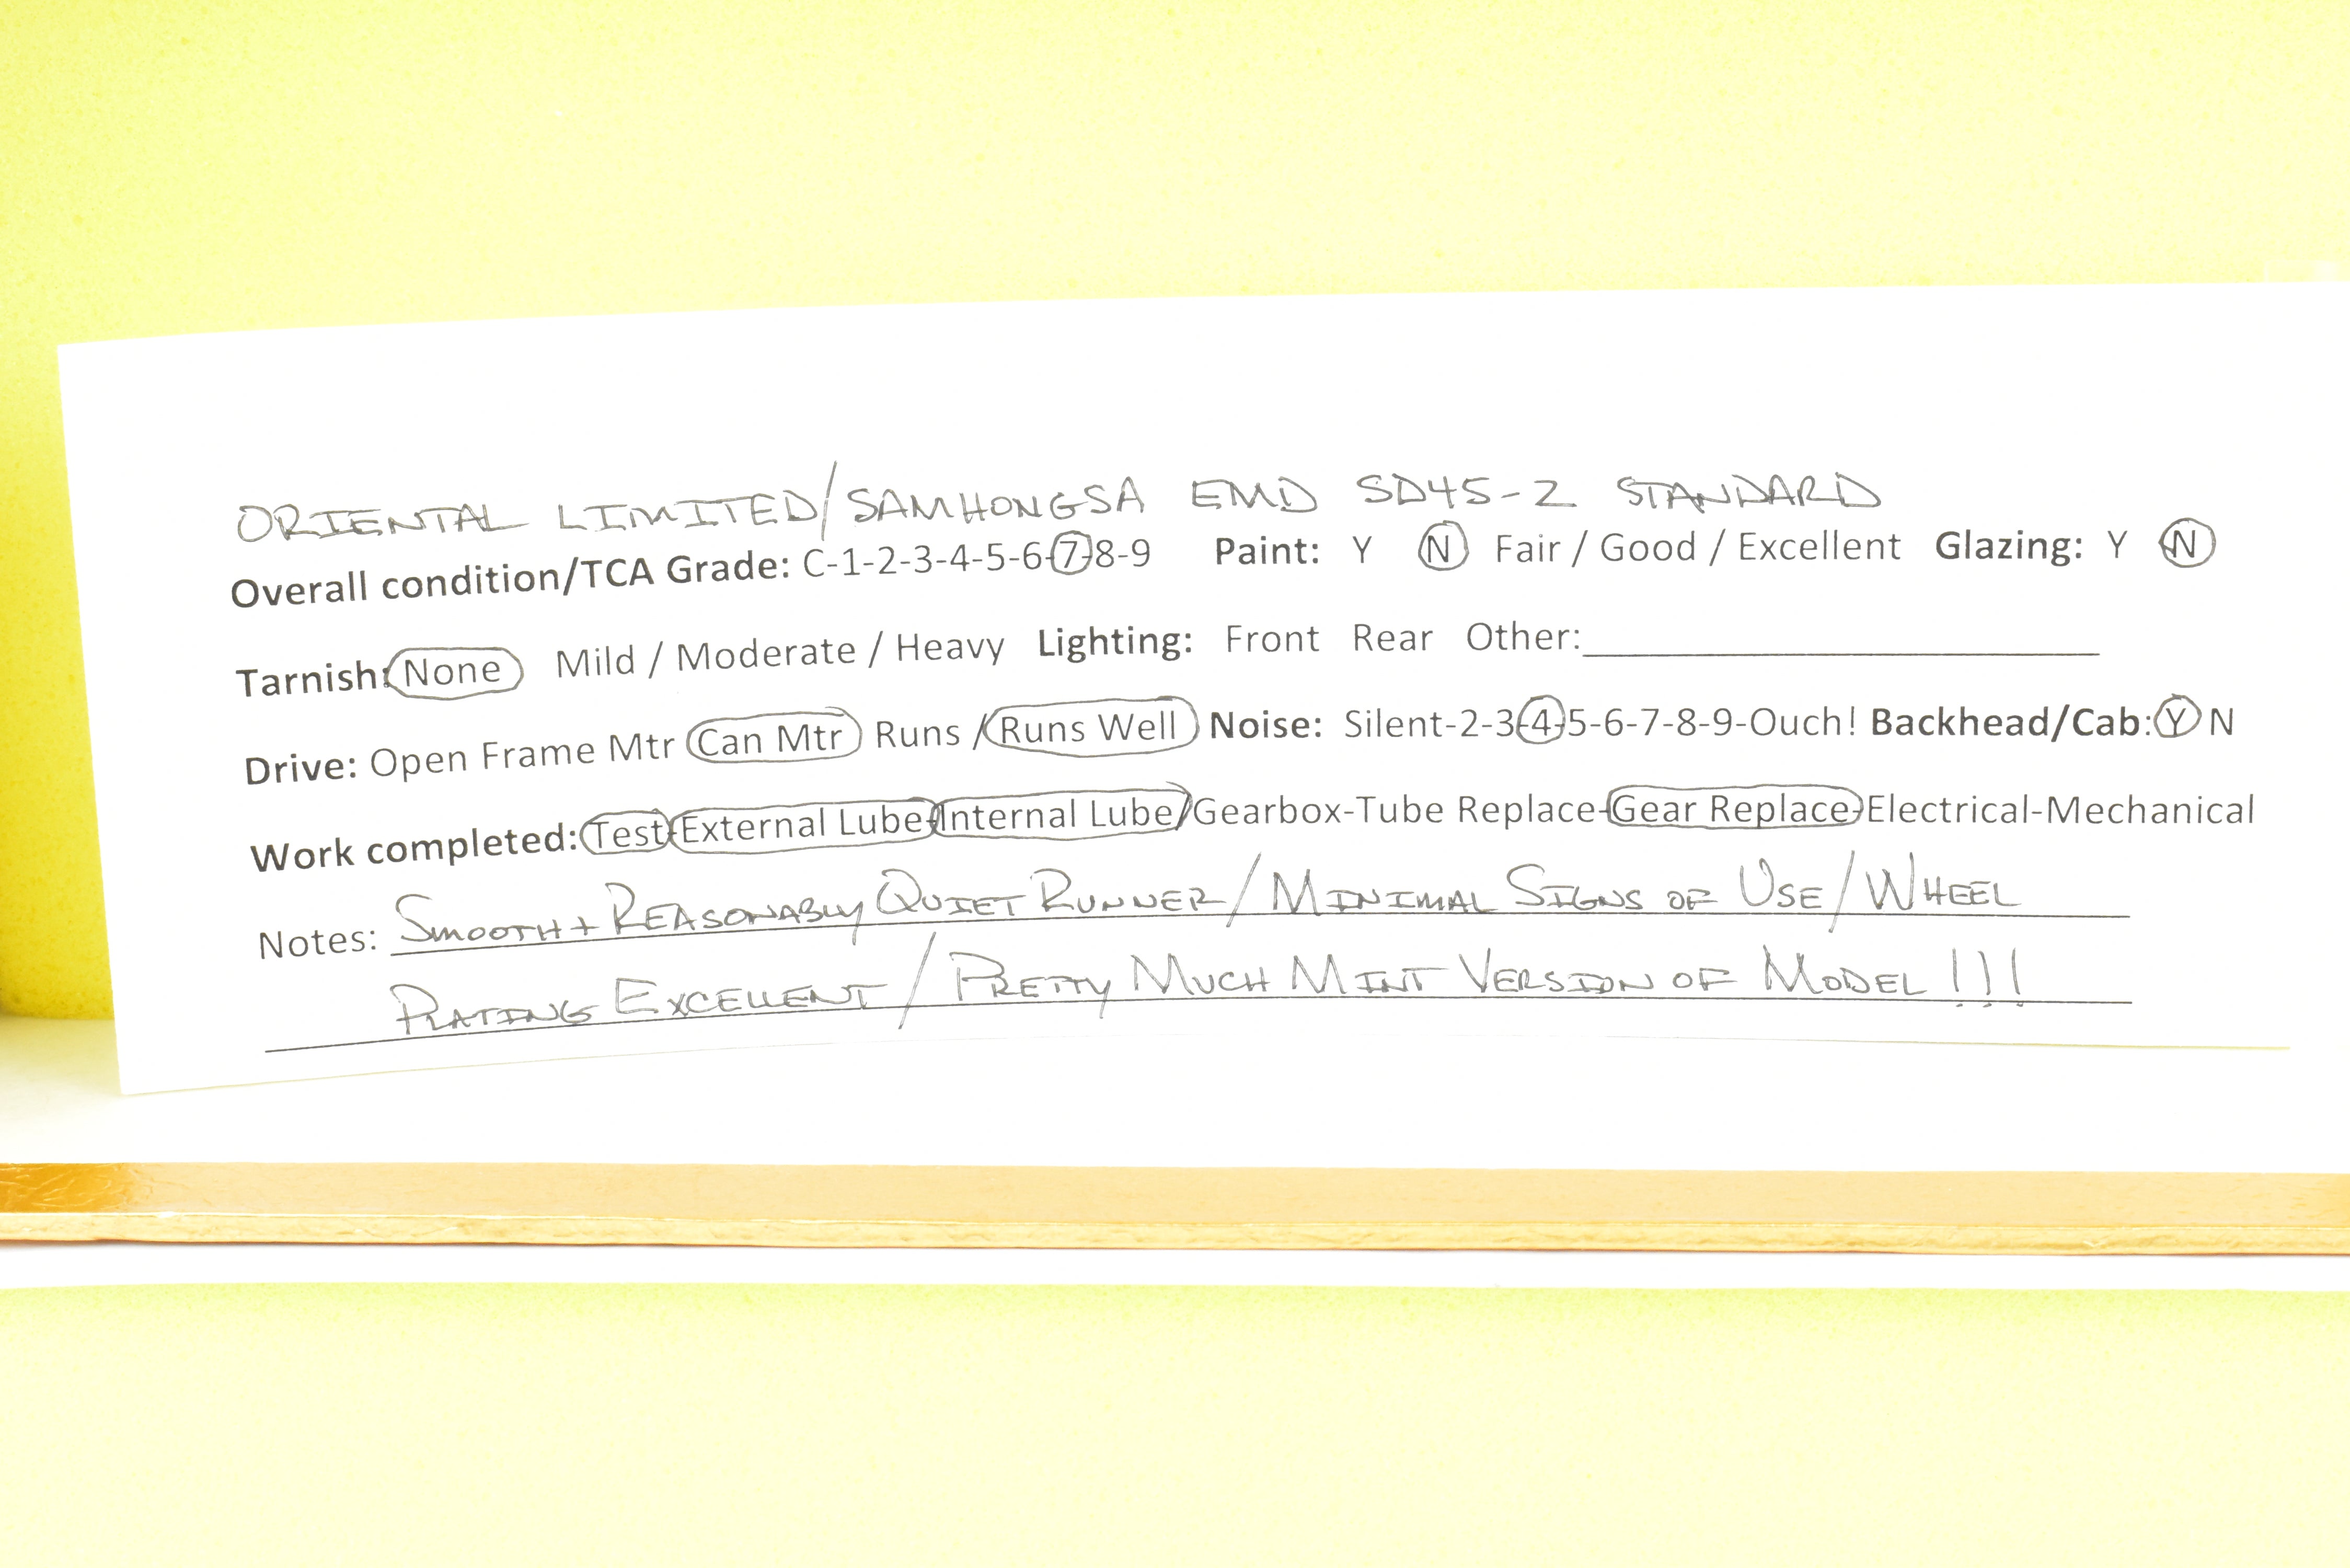 ORIENTAL LIMITED/SAMHONGSA EMD SD45-2 STANDARD
Overall condition/TCA Grade: C-1-2-3-4-5-6-7-8-9 Paint: Y N Fair / Good / Excellent Glazing: Y N
Tarnish: None Mild / Moderate / Heavy Lighting: Front Rear Other:
Drive: Open Frame Mtr Can Mtr Runs / Runs Well Noise: Silent-2-3-4-5-6-7-8-9-Ouch! Backhead/Cab: Y N
Work completed: Test-External Lube-Internal Lube/Gearbox-Tube Replace-Gear Replace-Electrical-Mechanical
Notes: SMOOTH + REASONABLY QUIET RUNNER/MINIMAL SIGNS OF USE/WHEEL
PLATING EXCELLENT/PRETTY MUCH MINT VERSION OF MODEL!!!